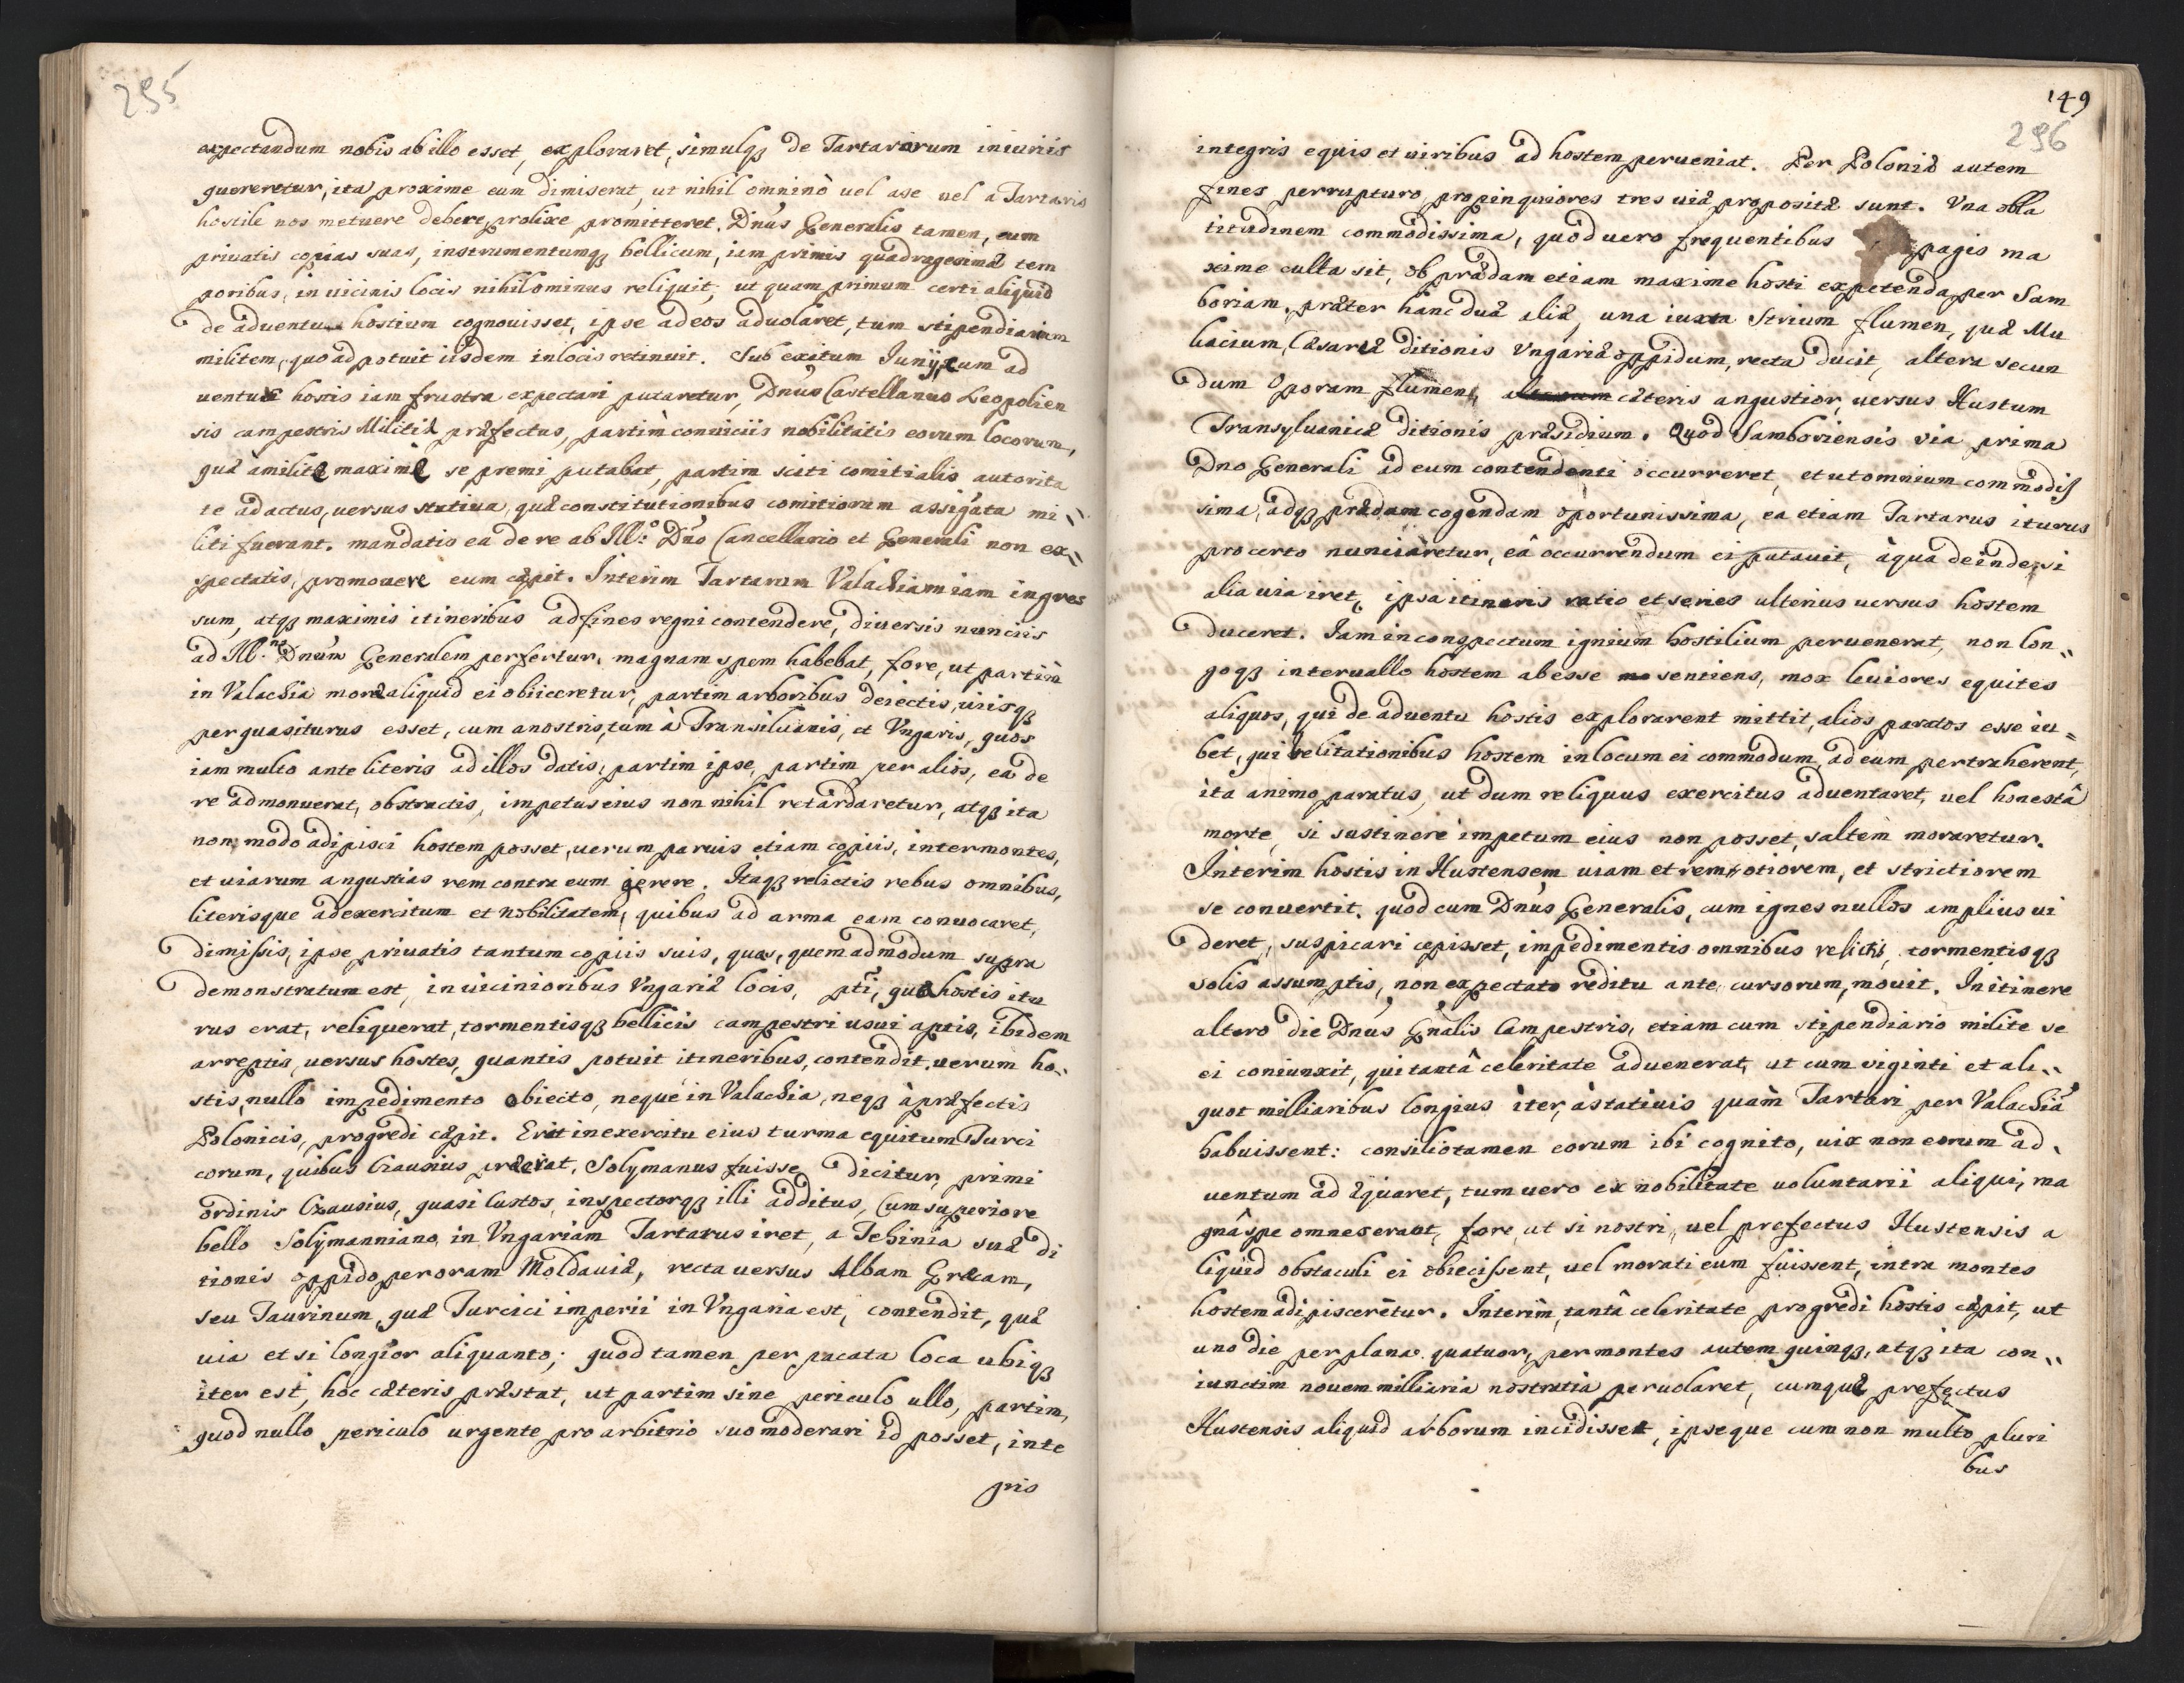 295
expectandum nobis ab illo esset, exploraret, simulqꝫ de Tartarorum iniuriis
quereretur, ita proxime eum dimiserat, ut nihil omninò uel a se uel a Tartaris
hostile nos metuere debere, prolixe promitteret. Dnus Generalis tamen, cum
priuatis copias suas, instrumentumqꝫ bellicum, iam primis quadragesimæ tem
poribus, in uicinis locis nihilominus reliquit, ut quam primum certi aliquid
de aduentu hostium cognouisset, ipse ad eos aduolaret, tum stipendiarium
militem, quoad potuit iisdem in locis retinuit. Sub exitum Junij, cum ad
uentus hostis iam frustra expectari putaretur, Dnus Castellanus Leopolien
sis campestris Militiæ præfectus, partim conuiciis nobilitatis eorum locorum,
quæ à milite maxime se premi putabat, partim sciti comitialis autorita
te adactus, uersus statiua, quæ constitutionibus comitiorum assigata mi〃
liti fuerant. mandatis ea de re ab Ill.º Dno Cancellario et Generali non ex〃
spectatis, promouere eum cæpit. Interim Tartarum Valachiam iam ingres
sum, atqꝫ maximis itineribus ad fines regni contendere, diuersis nunciis
ad Ill.ᵐ Dnum Generalem perfertur, magnam spem habebat, fore, ut partim
in Valachia moræ aliquid ei obiiceretur, partim arboribus deiectis, uiisqꝫ
per quas iturus esset, cum a nostris, tum à Transiluanis, et Vngaris, quos
iam multo ante literis ad illos datis, partim ipse, partim per alios, ea de
re admonuerat, obstructis, impetus eius non nihil retardaretur, atqꝫ ita
non modo adipisci hostem posset, uerum paruis etiam copiis, inter montes,
et uiarum angustias rem contra eum gerere. Itaqꝫ relictis rebus omnibus,
literisque ad exercitum et nobilitatem, quibus ad arma eam conuocaret,
dimissis, ipse priuatis tantum copiis suis, quas, quemadmodum supra
demonstratum est, in uicinioribus Vngariæ locis, pti, qua hostis itu
rus erat, reliquerat, tormentisqꝫ bellicis campestri usui aptis, ibidem
arreptis, uersus hostes, quantis potuit itineribus, contendit. uerum ho〃
stis, nullo impedimento obiecto, neque in Valachia, neqꝫ à præfectis
Polonicis, progredi cæpit. Erat in exercitu eius turma equitum Turci
corum, quibus Czausius præerat, Solymanus fuisse dicitur, primi
ordinis Czausius, quasi Custos, inspectorqꝫ illi additus, Cum superiore
bello Solijmanniano, in Vngariam Tartarus iret, a Tehinia suæ di
tionis oppido per oram Moldauiæ, recta uersus Albam Græcam,
seu Taurinum, quæ Turcici imperii in Vngaria est, contendit, quæ
uia etsi longior aliquanto; quod tamen per pacata loca ubiqꝫ
iter est, hoc cæteris præstat, ut partim sine periculo ullo, partim,
quod nullo periculo urgente pro arbitrio suo moderari id posset, inte
gris
149
296
integris equis et uiribus ad hostem perueniat. Per Poloniæ autem
fines perrupturo, propinquiores tres uiæ propositæ sunt. Vna ob la
titudinem commodissima, quod uero frequentibus pagis ma
xime culta sit, ob prædam etiam maxime hosti expetenda, per Sam
boriam. præter hanc duæ aliæ, una iuxta Strium flumen, quæ Mu
kacium, Cæsareæ ditionis Vngariæ oppidum, recta ducit, altera secun
dum Oporam flumen, cæteris angustior, uersus Hustum
Transyluanicæ ditionis præsidium. Quod Samboriensis via prima
Dno Generali ad eum contendenti occurreret, et ut omnium commodis
sima, adqꝫ prædam cogendam oportunissima, ea etiam Tartarus iturus
pro certo nunciaretur, eâ occurrendum ei putauit, à qua deinde, si
alia uia iret, ipsa itineris ratio et series ulterius uersus hostem
duceret. Jam in conspectum ignium hostilium peruenerat, non lon〃
goqꝫ interuallo hostem abesse sentiens, mox leuiores equites
aliquos, qui de aduentu hostis explorarent mittit, alios paratos esse iu〃
bet, qui uelitationibus hostem in locum ei commodum, ad eum pertraherent,
ita animo paratus, ut dum reliquus exercitus aduentaret, uel honestâ
morte, si sustinere impetum eius non posset, saltem moraretur.
Interim hostis in Hustensem uiam et remotiorem, et strictiorem
se conuertit. quod cum Dnus Generalis, cum ignes nullos amplius ui
deret, suspicari cæpisset, impedimentis omnibus relictis, tormentisqꝫ
solis assumptis, non expectato reditu ante cursorum, mouit. In itinere
altero die Dnus Gnalis Campestris, etiam cum stipendiario milite se
ei coniunxit, qui tantâ celeritate aduenerat, ut cum viginti et ali〃
quot milliaribus longius iter, à statiuis quàm Tartari per Valachiã
habuissent: consilio tamen eorum ibi cognito, uix non eorum ad〃
uentum adæquaret, tum uero ex nobilitate uoluntarii aliqui, ma
gnâ spe omnes erant, fore, ut si nostri, uel prefectus Hustensis a
liquid obstaculi ei obiecissent, uel morati eum fuissent, intra montes
hostem adipiscerẽtur. Interim, tantâ celeritate progredi hostis cæpit, ut
uno die per plana quatuor, per montes autem quinqꝫ, atqꝫ ita con〃
iunctim nouem milliaria nostratia peruolaret, cumque prefectus
Hustensis aliquid arborum incidisset, ipseque cum non multo pluri
bus